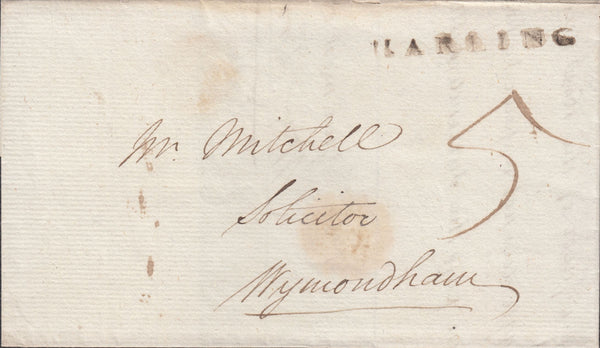 HARLING
Mr. Mitchell
5
Solicitor
Wymondham